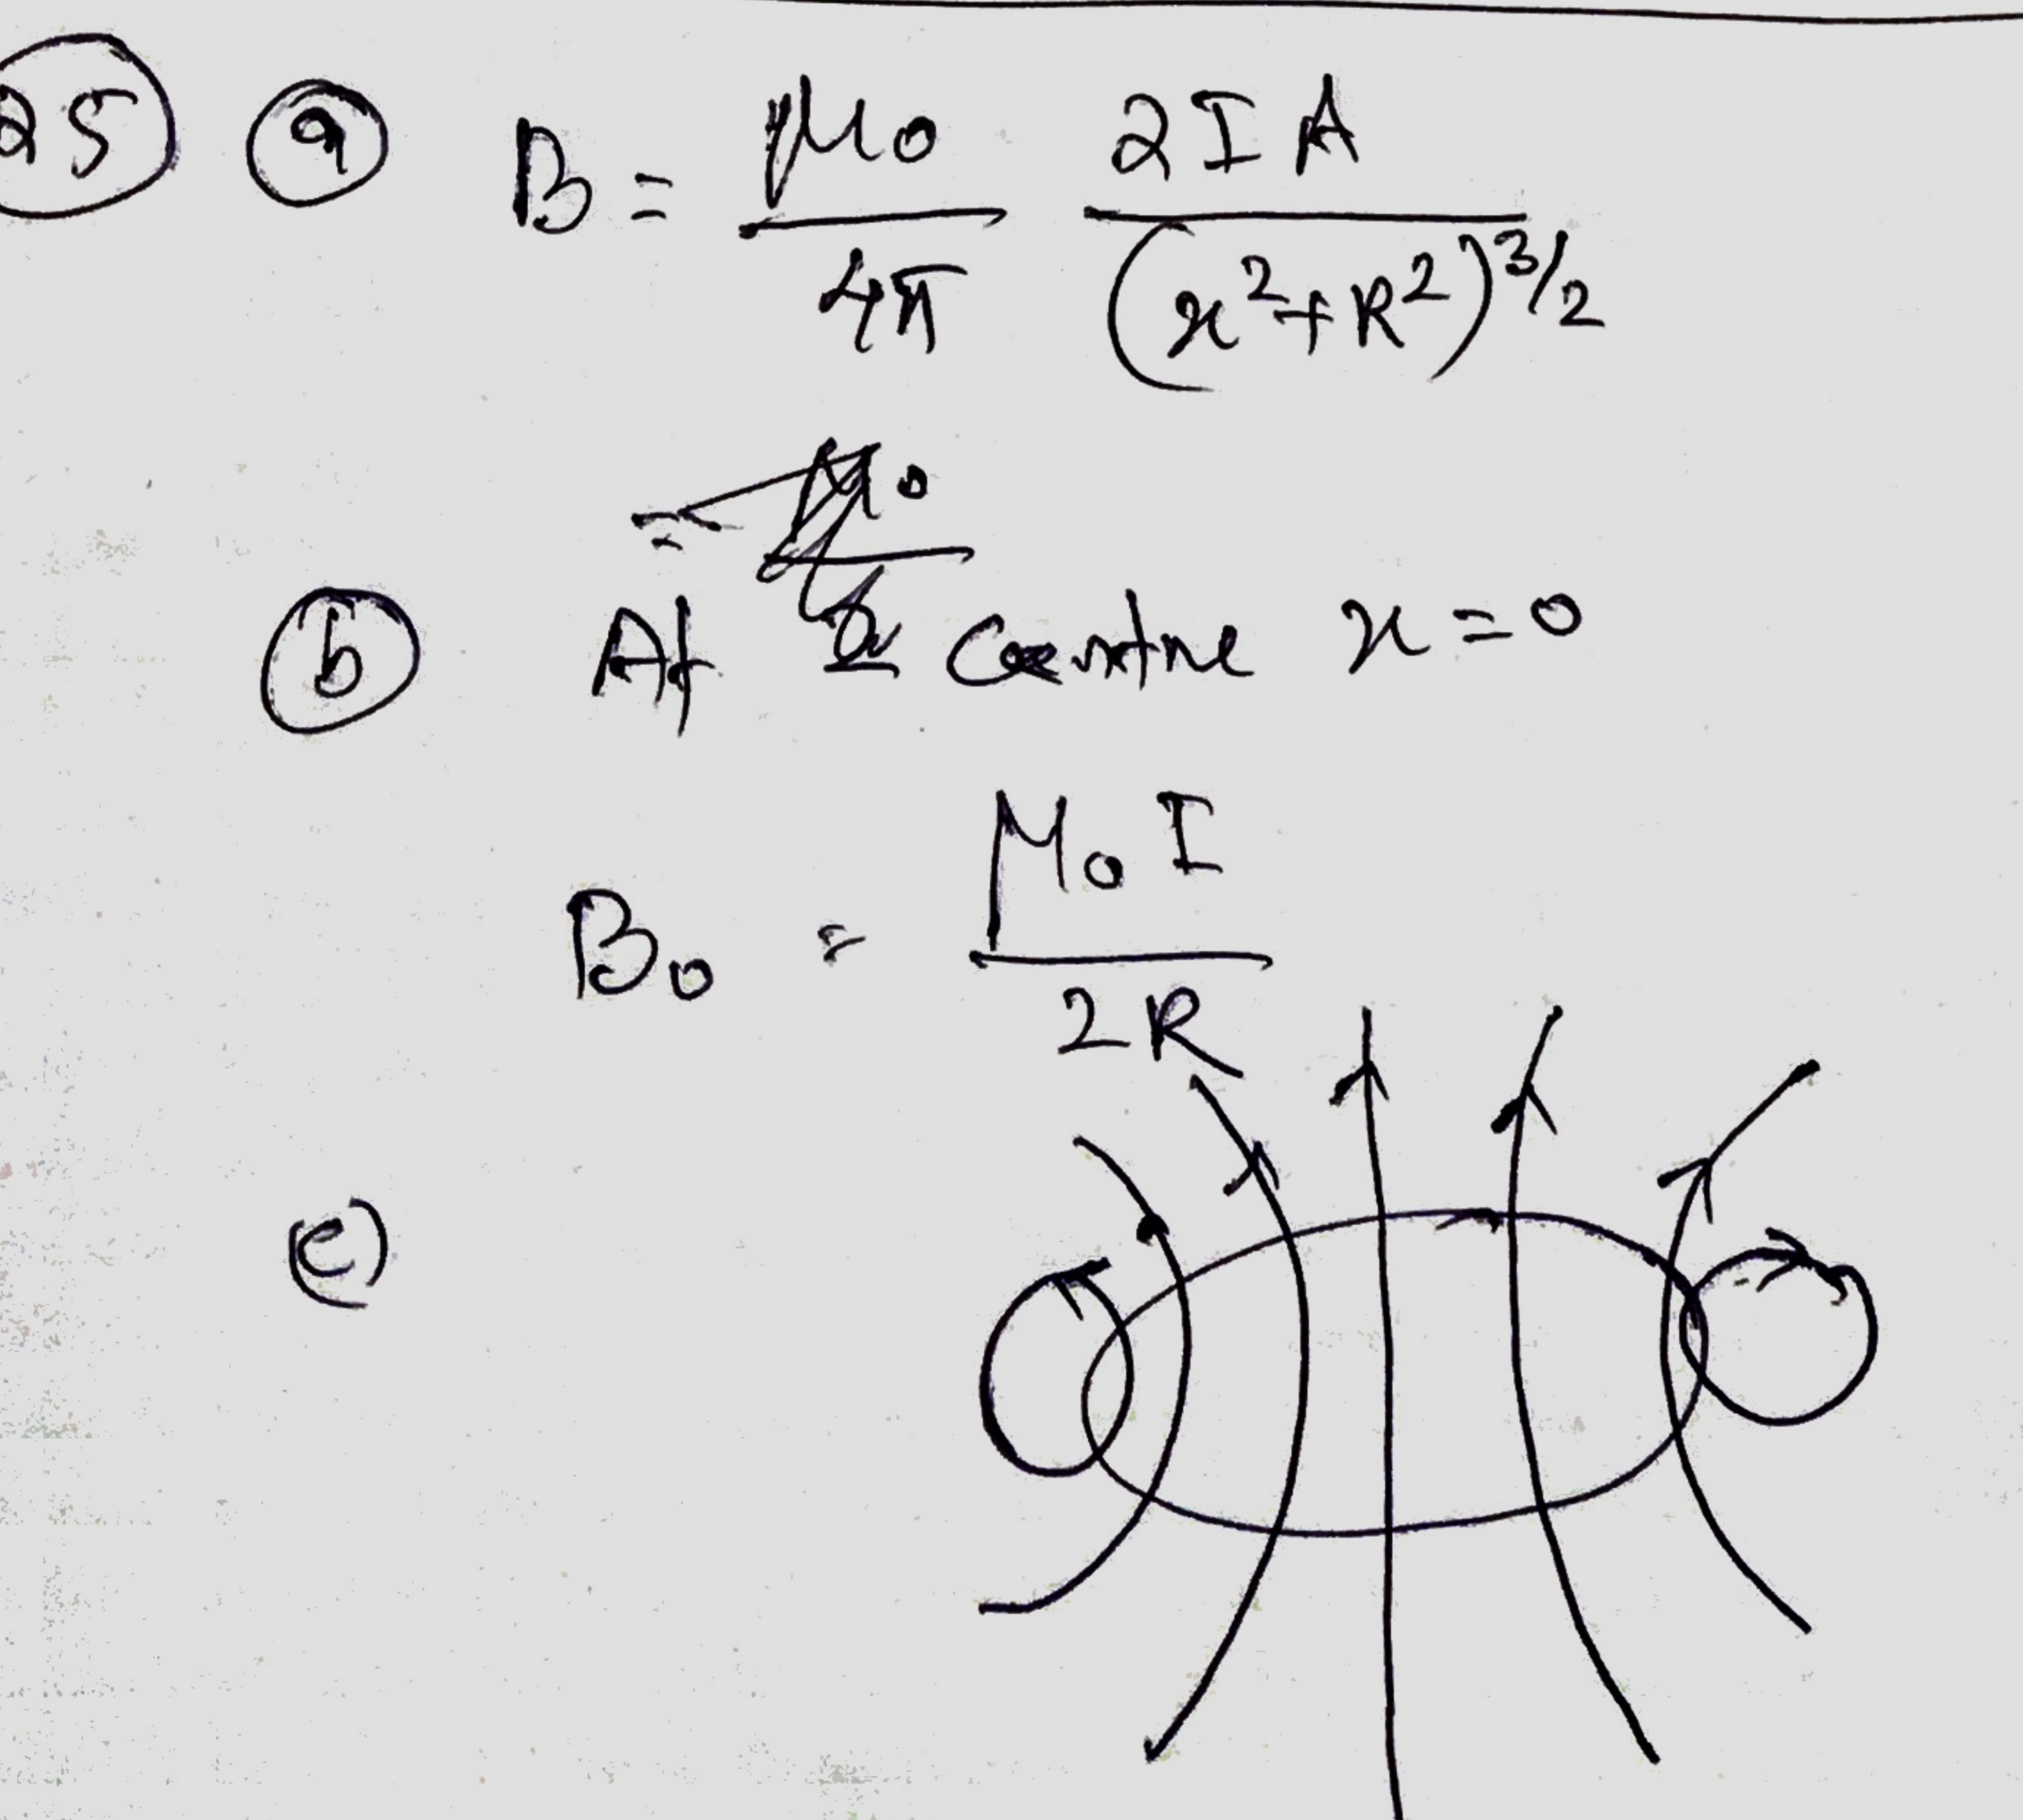 25 a B = μ₀/4π 2IA/(x²+R²)^3/2
= μ₀/2
b At centre x=0
B₀ = μ₀I/2R
c)